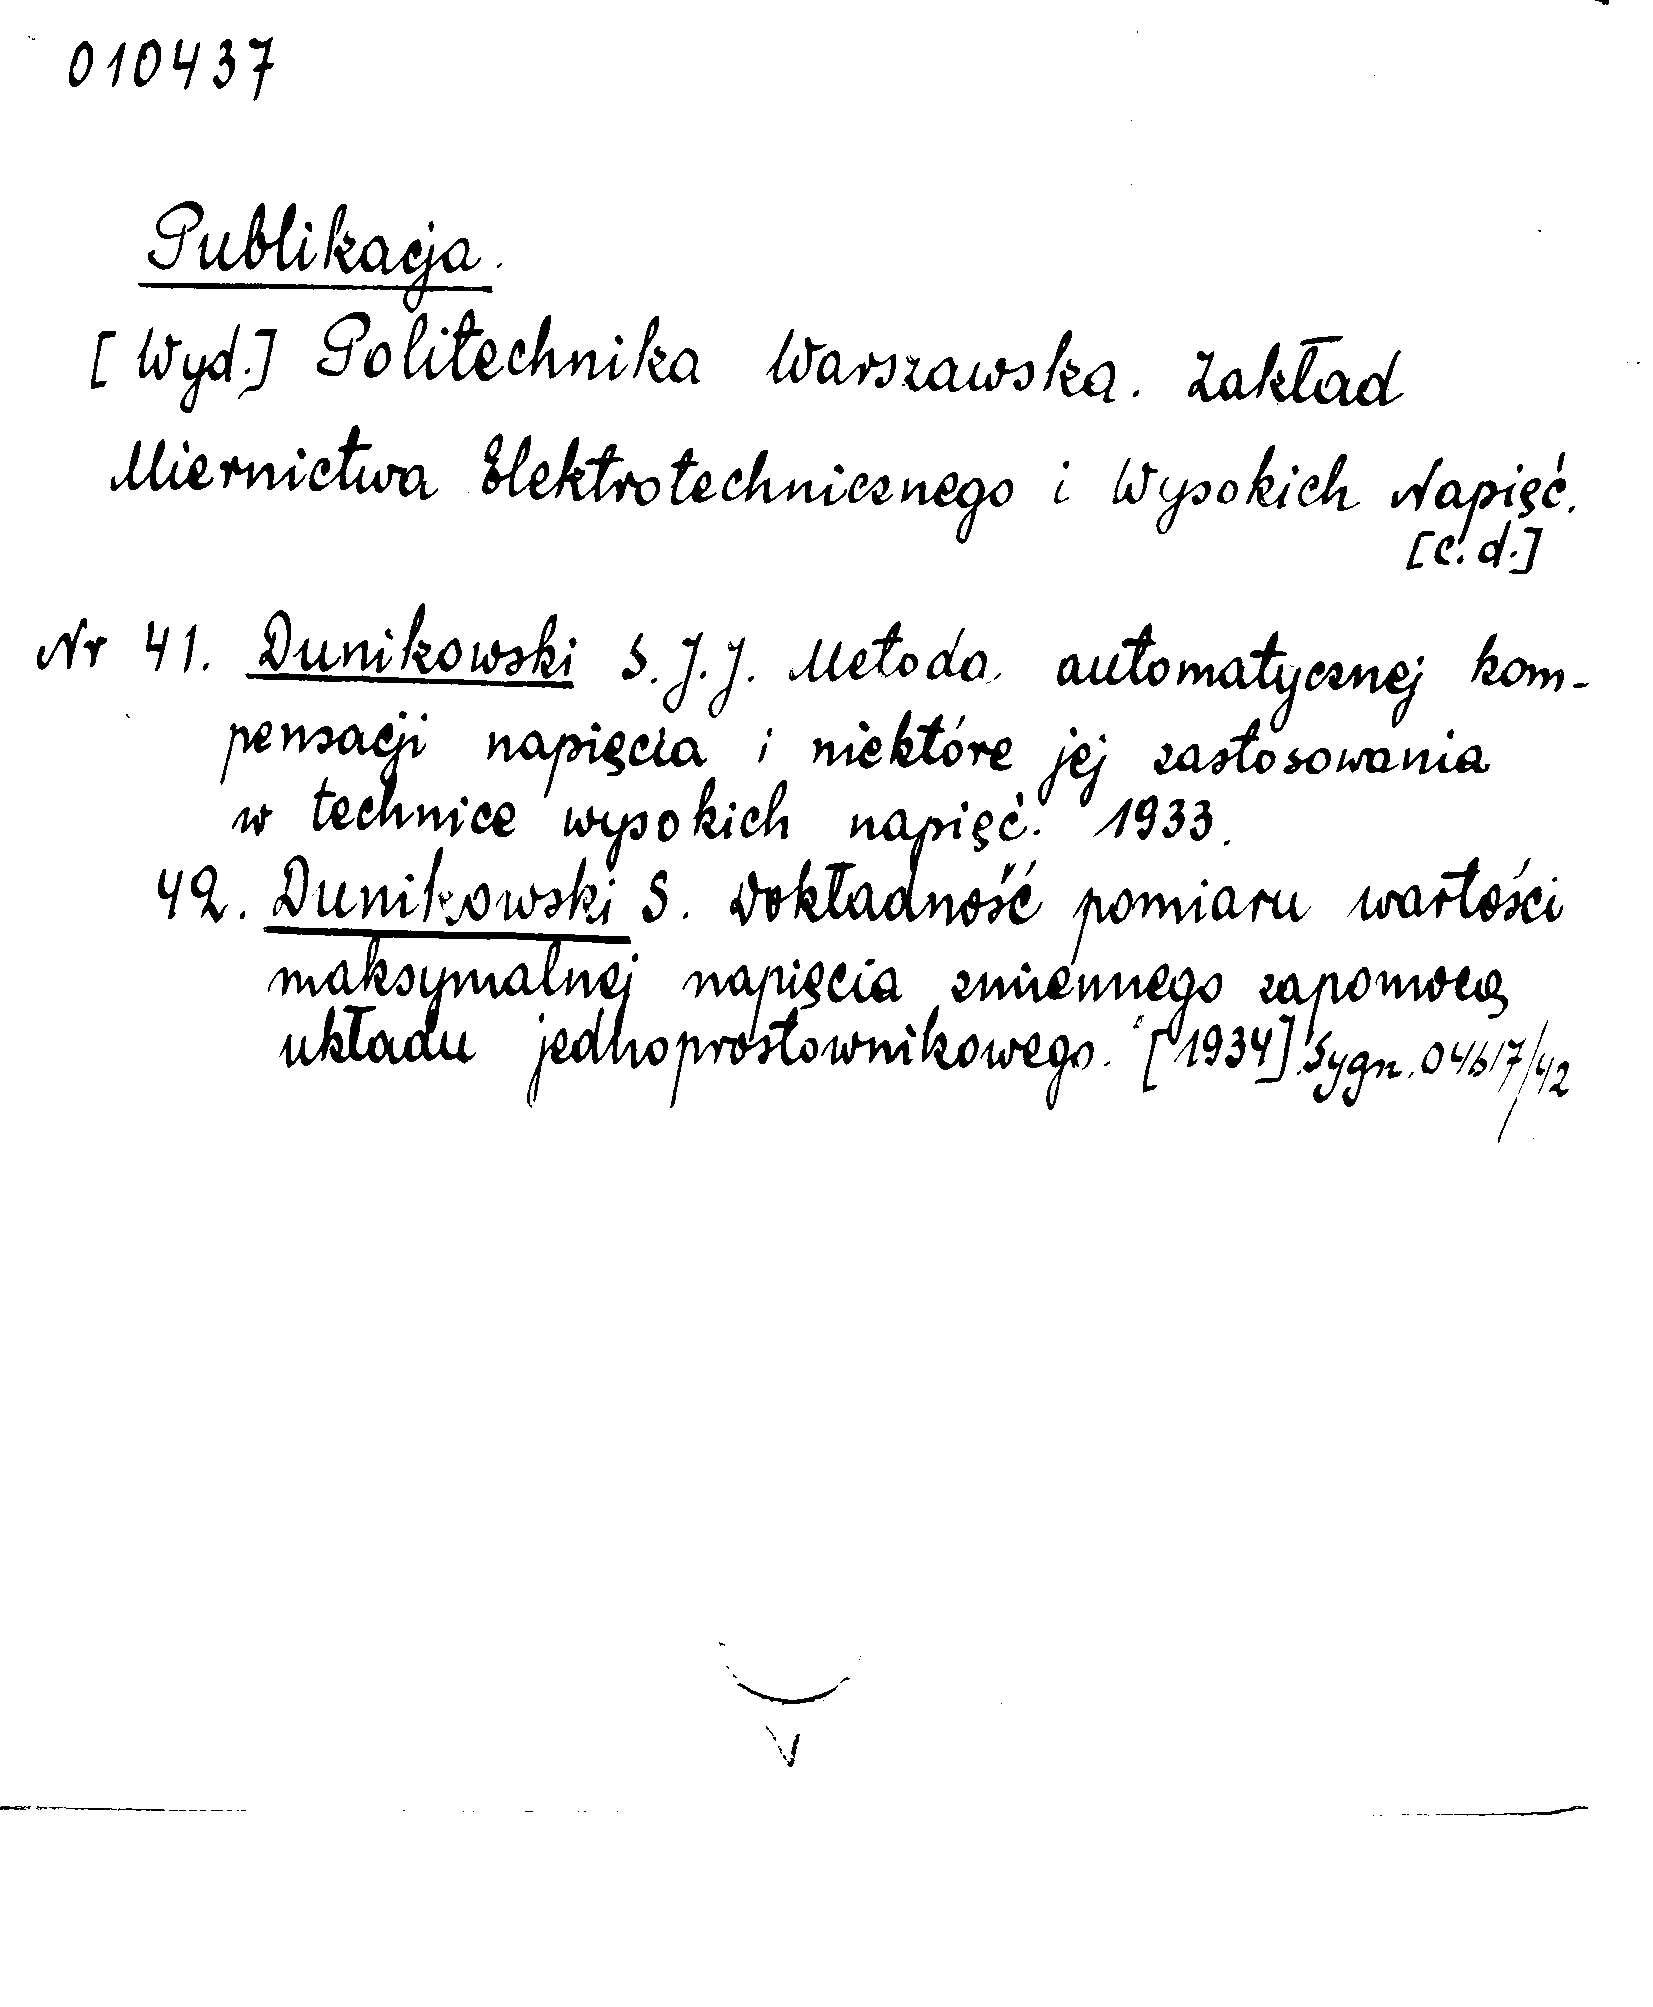 010437
Publikacja.
[Wyd.] Politechnika Warszawska. Zakład
Miernictwa Elektrotechnicznego i Wysokich Napięć.
[c.d.]
Nr 41. Dunikowski S.J.J. Metoda automatycznej kom-
pensacji napięcia i niektóre jej zastosowania
w technice wysokich napięć. 1933.
42. Dunikowski S. Dokładność pomiaru wartości
maksymalnej napięcia zmiennego zapomocą
układu jednoprostownikowego. [1934]. Sygn. 04617/42